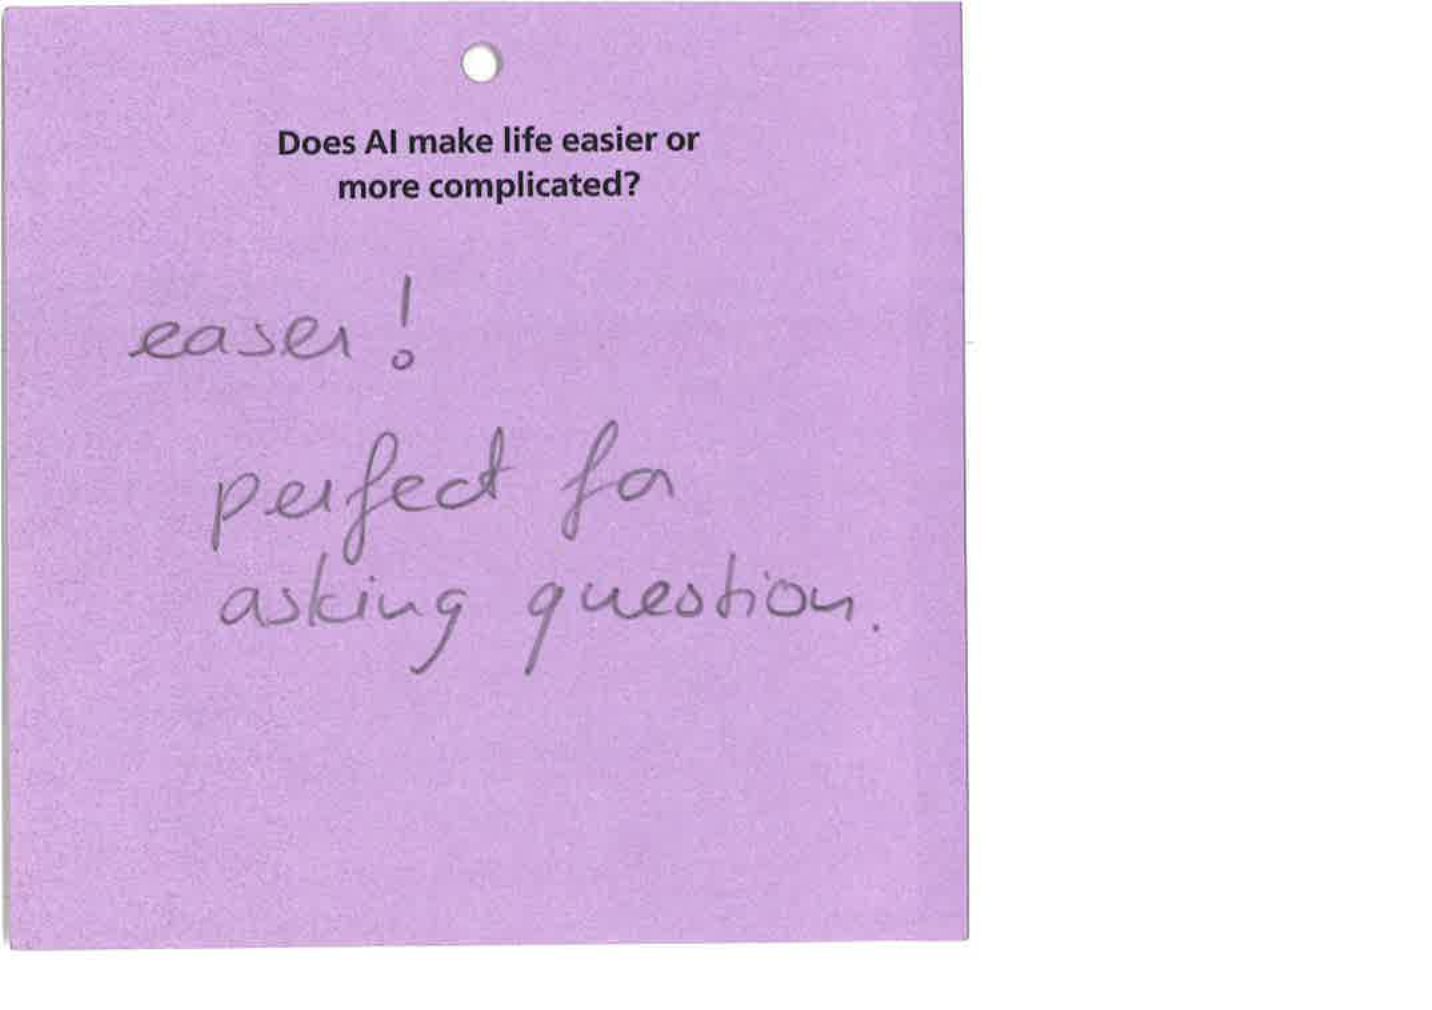 Does AI make life easier or
more complicated?
easer!
perfect for
asking question.